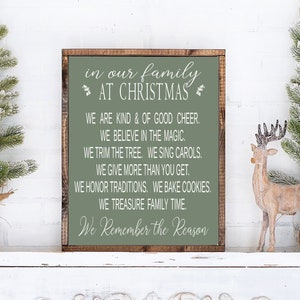 in our family
AT CHRISTMAS
WE ARE KIND & OF GOOD CHEER.
WE BELIEVE IN THE MAGIC.
WE TRIM THE TREE. WE SING CAROLS.
WE GIVE MORE THAN YOU GET.
WE HONOR TRADITIONS. WE BAKE COOKIES.
WE TREASURE FAMILY TIME.
We Remember the Reason